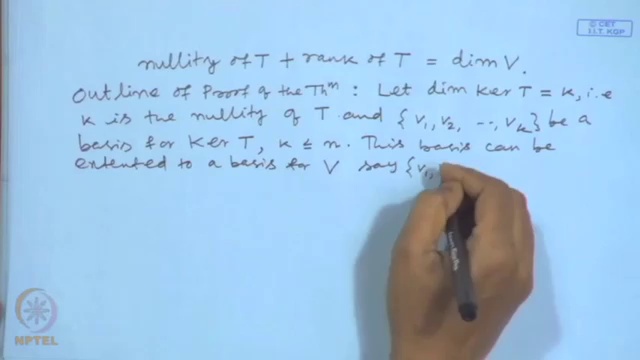 © CET
I.I.T. KGP
nullity of T + rank of T = dim V.
Outline of Proof of the Thᵐ : Let dim Ker T = k, i.e
k is the nullity of T and {v₁, v₂, ..., vₖ} be a
basis for Ker T, k ≤ n. This basis can be
extented to a basis for V say {v₁,
NPTEL